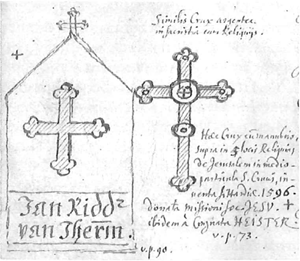 Similis Crux argentea
in sacristia cum Reliquijs.
Jan Ridd<sup>r</sup>
van Therin.
v.p. 90.
Hæc Crux cum manubrio
supra in 5 locis Reliquias
de Jerusalem in medio
particula S. Crucis,
1596.
donata missioni Soc. JESV. +
ibidem à Cognata HEISTER.
v. p. 73.